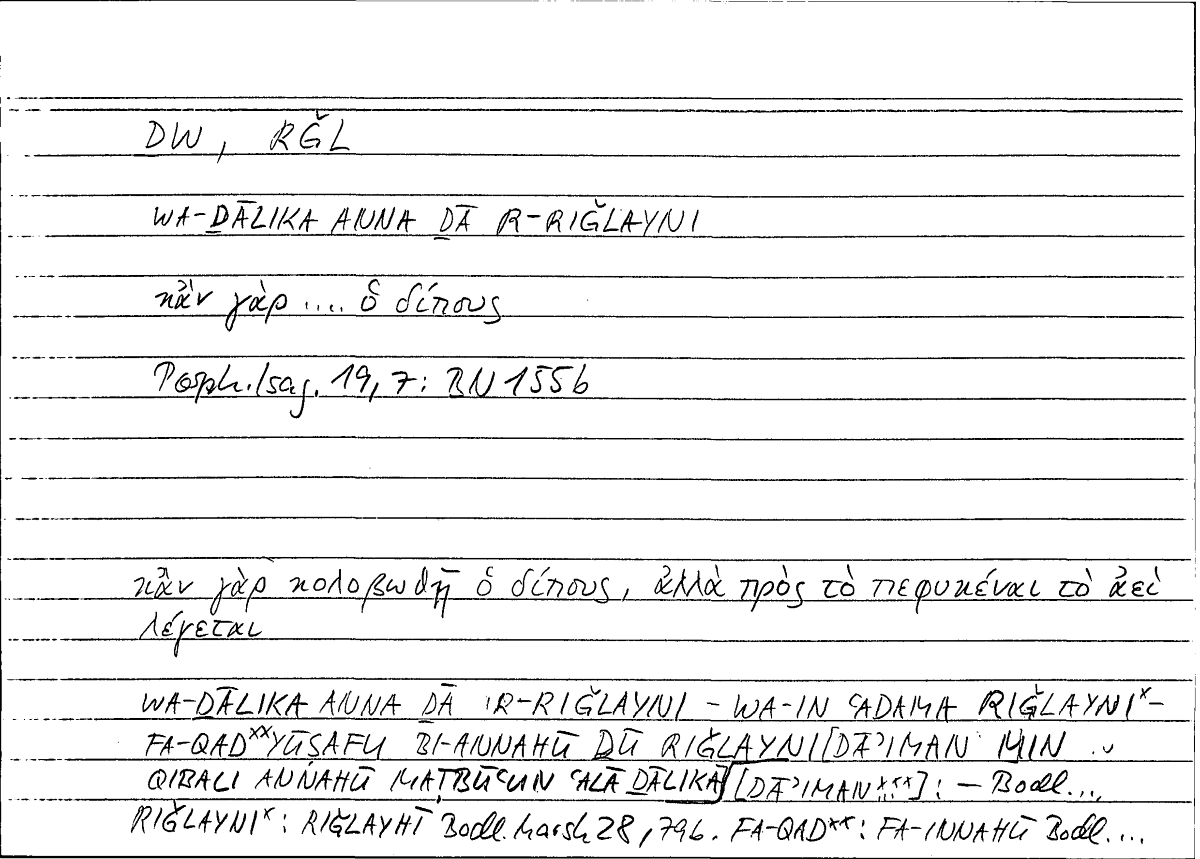 DW, RǦL
WA-ḎĀLIKA ANNA ḎĀ R-RIǦLAYNI
κἂν γὰρ .... ὁ δίπους
Porph. Isag. 19, 7: BN 155b
κἂν γὰρ κολοβωθῇ ὁ δίπους, ἀλλὰ πρὸς τὸ πεφυκέναι τὸ ἀεὶ
λέγεται
WA-ḎĀLIKA ANNA ḎĀ 'R-RIǦLAYNI - WA-IN ʿADAMA RIǦLAYNIˣ-
FA-QADˣˣ YŪṢAFU BI-ANNAHŪ ḎŪ RIǦLAYNI [DĀʾIMAN MIN ..
QIBALI ANNAHŪ MAṬBŪʿUN ʿALĀ ḎĀLIKA] [DĀʾIMANˣˣˣ]: — Bodl...
RIǦLAYNIˣ: RIǦLAYHĪ Bodl. Marsh 28, 79b. FA-QADˣˣ: FA-INNAHŪ Bodl....